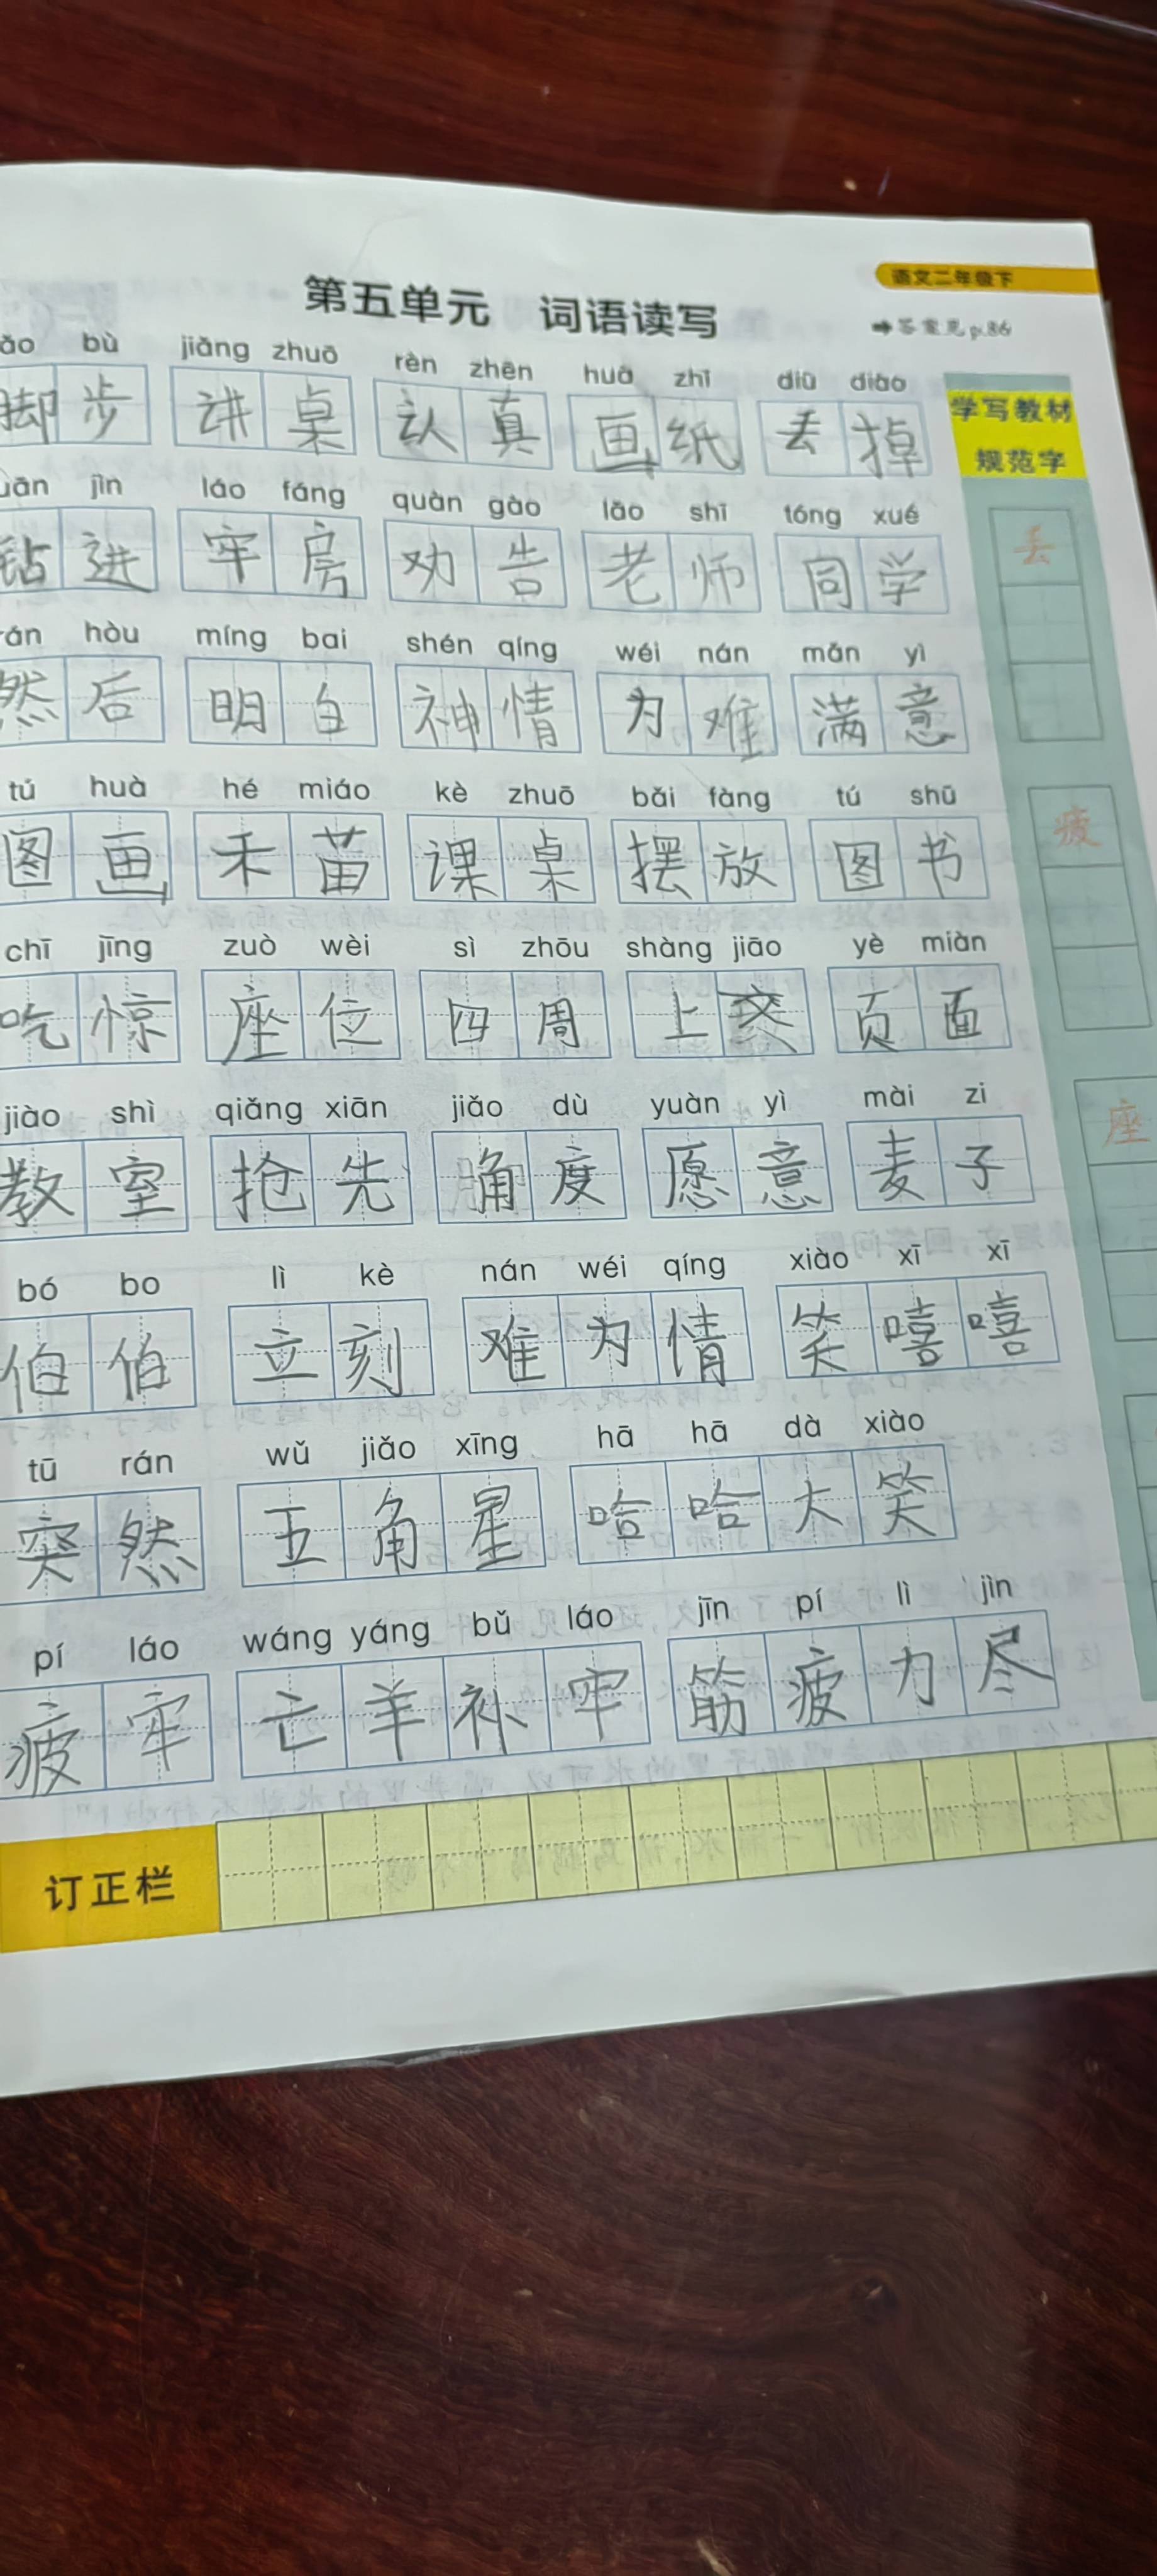 语文二年级下
第五单元 词语读写
➡答案见p.86
ǎo bù jiǎng zhuō rèn zhēn huà zhǐ diū diào
脚步 讲桌 认真 画纸 丢掉
学写教材
规范字
uān jìn láo fáng quàn gào lǎo shī tóng xué
钻进 牢房 劝告 老师 同学
丢
rán hòu míng bai shén qíng wéi nán mǎn yì
然后 明白 神情 为难 满意
tú huà hé miáo kè zhuō bǎi fàng tú shū
图画 禾苗 课桌 摆放 图书
疲
chī jīng zuò wèi sì zhōu shàng jiāo yè miàn
吃惊 座位 四周 上交 页面
jiào shì qiǎng xiān jiǎo dù yuàn yì mài zi
教室 抢先 角度 愿意 麦子
座
bó bo lì kè nán wéi qíng xiào xī xī
伯伯 立刻 难为情 笑嘻嘻
tū rán wǔ jiǎo xīng hā hā dà xiào
突然 五角星 哈哈大笑
pí láo wáng yáng bǔ láo jīn pí lì jìn
疲牢 亡羊补牢 筋疲力尽
订正栏